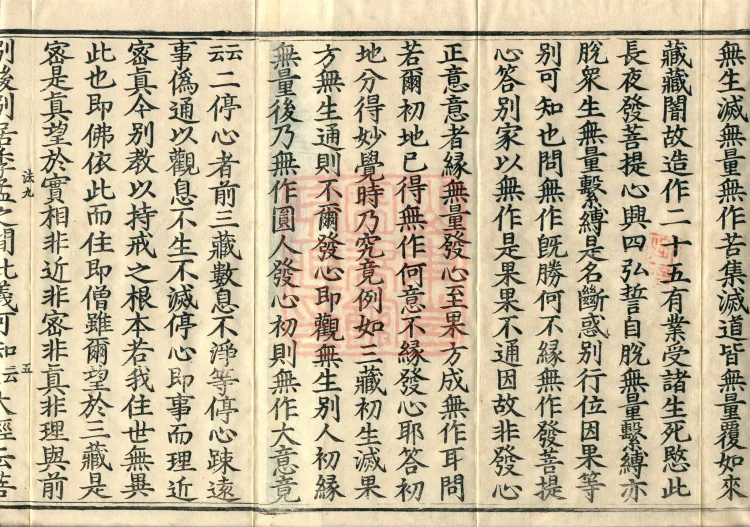 無生滅無量無作苦集滅道皆無量覆如來
藏藏闇故造作二十五有業受諸生死愍此
長夜發菩提心興四弘誓自脫無量繫縛亦
脫衆生無量繫縛是名斷惑別行位因果等
別可知也問無作既勝何不緣無作發菩提
心答別家以無作是果果不通因故非發心
正意意者緣無量發心至果方成無作耳問
若爾初地已得無作何意不緣發心耶答初
地分得妙覺時乃究竟例如三藏初生滅果
方無生通則不爾發心即觀無生別人初緣
無量後乃無作圓人發心初則無作大意竟
云云二停心者前三藏數息不淨等停心踈遠
事僞通以觀息不生不滅停心即事而理近
密真今別教以持戒之根本若我住世無異
此也即佛依此而住即僧雖爾望於三藏是
密是真望於實相非近非密非真非理與前
法九 五
別後別居季孟之間此義可知云云大經云菩